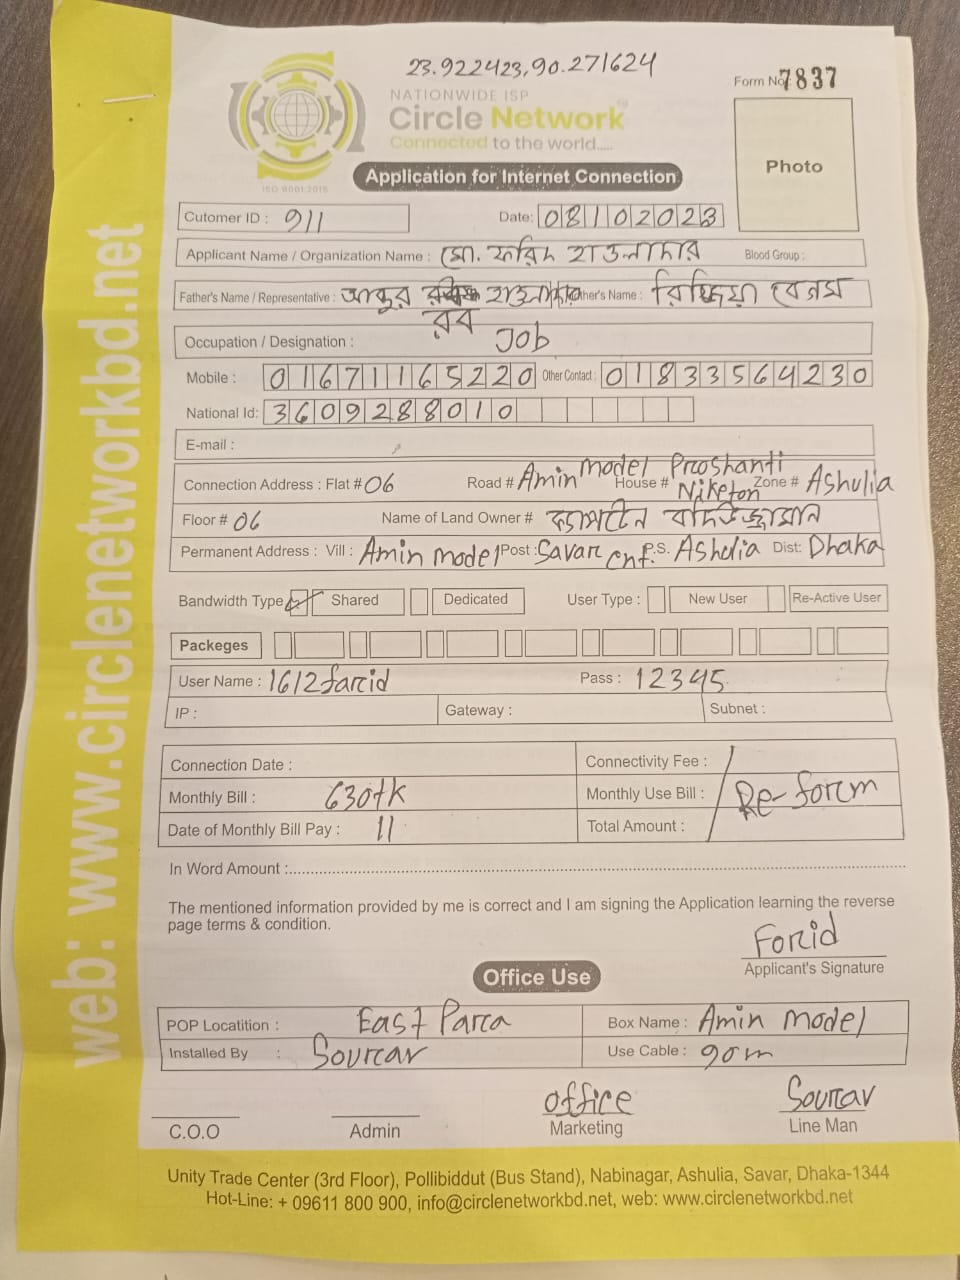 23.922423,90.271624
Form No: 7837
NATIONWIDE ISP
Circle Network
Connected to the world.....
ISO 9001:2015
Application for Internet Connection
Photo
Cutomer ID : 911
Date: 08102023
Applicant Name / Organization Name : মো. ফরিদ হাওলাদার Blood Group :
Father's Name / Representative : আব্দুর রব হাওলাদার Mother's Name : রিজিয়া বেগম
Occupation / Designation : Job
Mobile : 01671165220 Other Contact : 01833564230
National Id: 3609288010
E-mail :
Connection Address : Flat # 06 Road # Amin Model House # Proshanti Niketon Zone # Ashulia
Floor # 06 Name of Land Owner # ক্যাপটেন বদিউজ্জামান
Permanent Address : Vill : Amin model Post : Savar Cnt. P.S. Ashulia Dist: Dhaka
Bandwidth Type Shared Dedicated User Type : New User Re-Active User
Packeges
User Name : 1612farid Pass : 12345
IP : Gateway : Subnet :
Connection Date : Connectivity Fee :
Monthly Bill : 630tk Monthly Use Bill : Re-form
Date of Monthly Bill Pay : 11 Total Amount :
In Word Amount :
The mentioned information provided by me is correct and I am signing the Application learning the reverse
page terms & condition.
Forid
Applicant's Signature
Office Use
POP Locatition : East Para Box Name : Amin Model
Installed By : Sourav Use Cable : 90m
office Sourav
C.O.O Admin Marketing Line Man
Unity Trade Center (3rd Floor), Pollibiddut (Bus Stand), Nabinagar, Ashulia, Savar, Dhaka-1344
Hot-Line: + 09611 800 900, info@circlenetworkbd.net, web: www.circlenetworkbd.net
web: www.circlenetworkbd.net